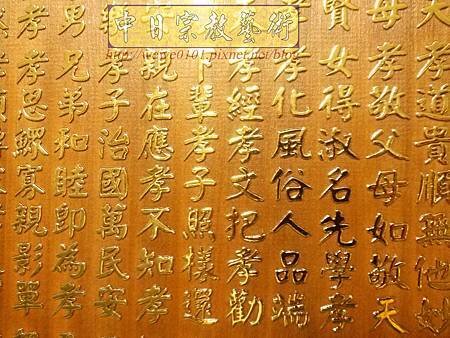 中日宗教藝術
http://wewe0101.pixnet.net/blog
大孝道貴順無他妙
母孝敬父母如敬天
賢女得淑名先學孝
孝化風俗人品端
孝經孝文把孝勸
下輩孝子照樣還
親在應孝不知孝
孝子治國萬民安
男兄弟和睦即為孝
孝孝思鰥寡親影單